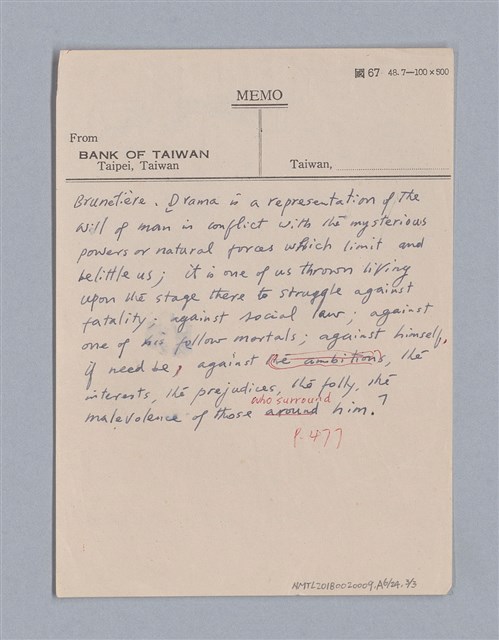 國 67 48.7—100×500
MEMO
From
BANK OF TAIWAN
Taipei, Taiwan
Taiwan,
Brunetière. Drama is a representation of the
will of man in conflict with the mysterious
powers or natural forces which limit and
belittle us; it is one of us thrown living
upon the stage there to struggle against
fatality; against social law; against
one of his fellow mortals; against himself,
if need be, against the ambitions, the
interests, the prejudices, the folly, the
who surround
malevolence of those around him."
P. 477
NMTL20180020009.A6/24.3/3